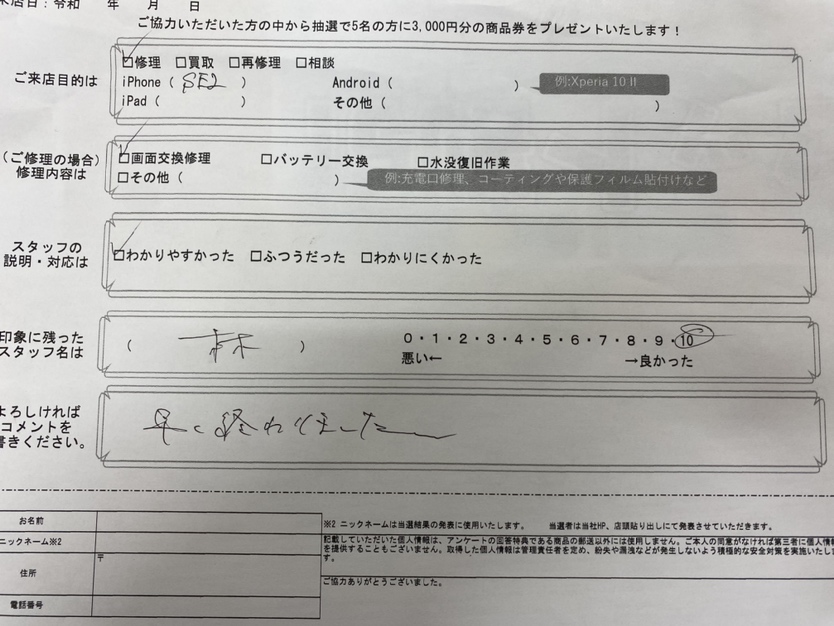 来店日：令和　年　月　日
ご協力いただいた方の中から抽選で5名の方に3,000円分の商品券をプレゼントいたします！
ご来店目的は
□修理　□買取　□再修理　□相談
iPhone（ SE2 ）　Android（　）　例:Xperia 10 II
iPad（　）　その他（　）
（ご修理の場合）
修理内容は
□画面交換修理　□バッテリー交換　□水没復旧作業
□その他（　）　例:充電口修理、コーティングや保護フィルム貼付けなど
スタッフの
説明・対応は
□わかりやすかった　□ふつうだった　□わかりにくかった
印象に残った
スタッフ名は
（ 林 ）　0・1・2・3・4・5・6・7・8・9・10
悪い←　→良かった
よろしければ
コメントを
書きください。
早く終わりました
お名前
ニックネーム※2
住所
〒
電話番号
※2 ニックネームは当選結果の発表に使用いたします。　当選者は当社HP、店頭貼り出しにて発表させていただきます。
記載していただいた個人情報は、アンケートの回答特典である商品の郵送以外には使用しません。ご本人の同意がなければ第三者に個人情
を提供することもございません。取得した個人情報は管理責任者を定め、紛失や漏洩などが発生しないよう積極的な安全対策を実施いたし
す。
ご協力ありがとうございました。